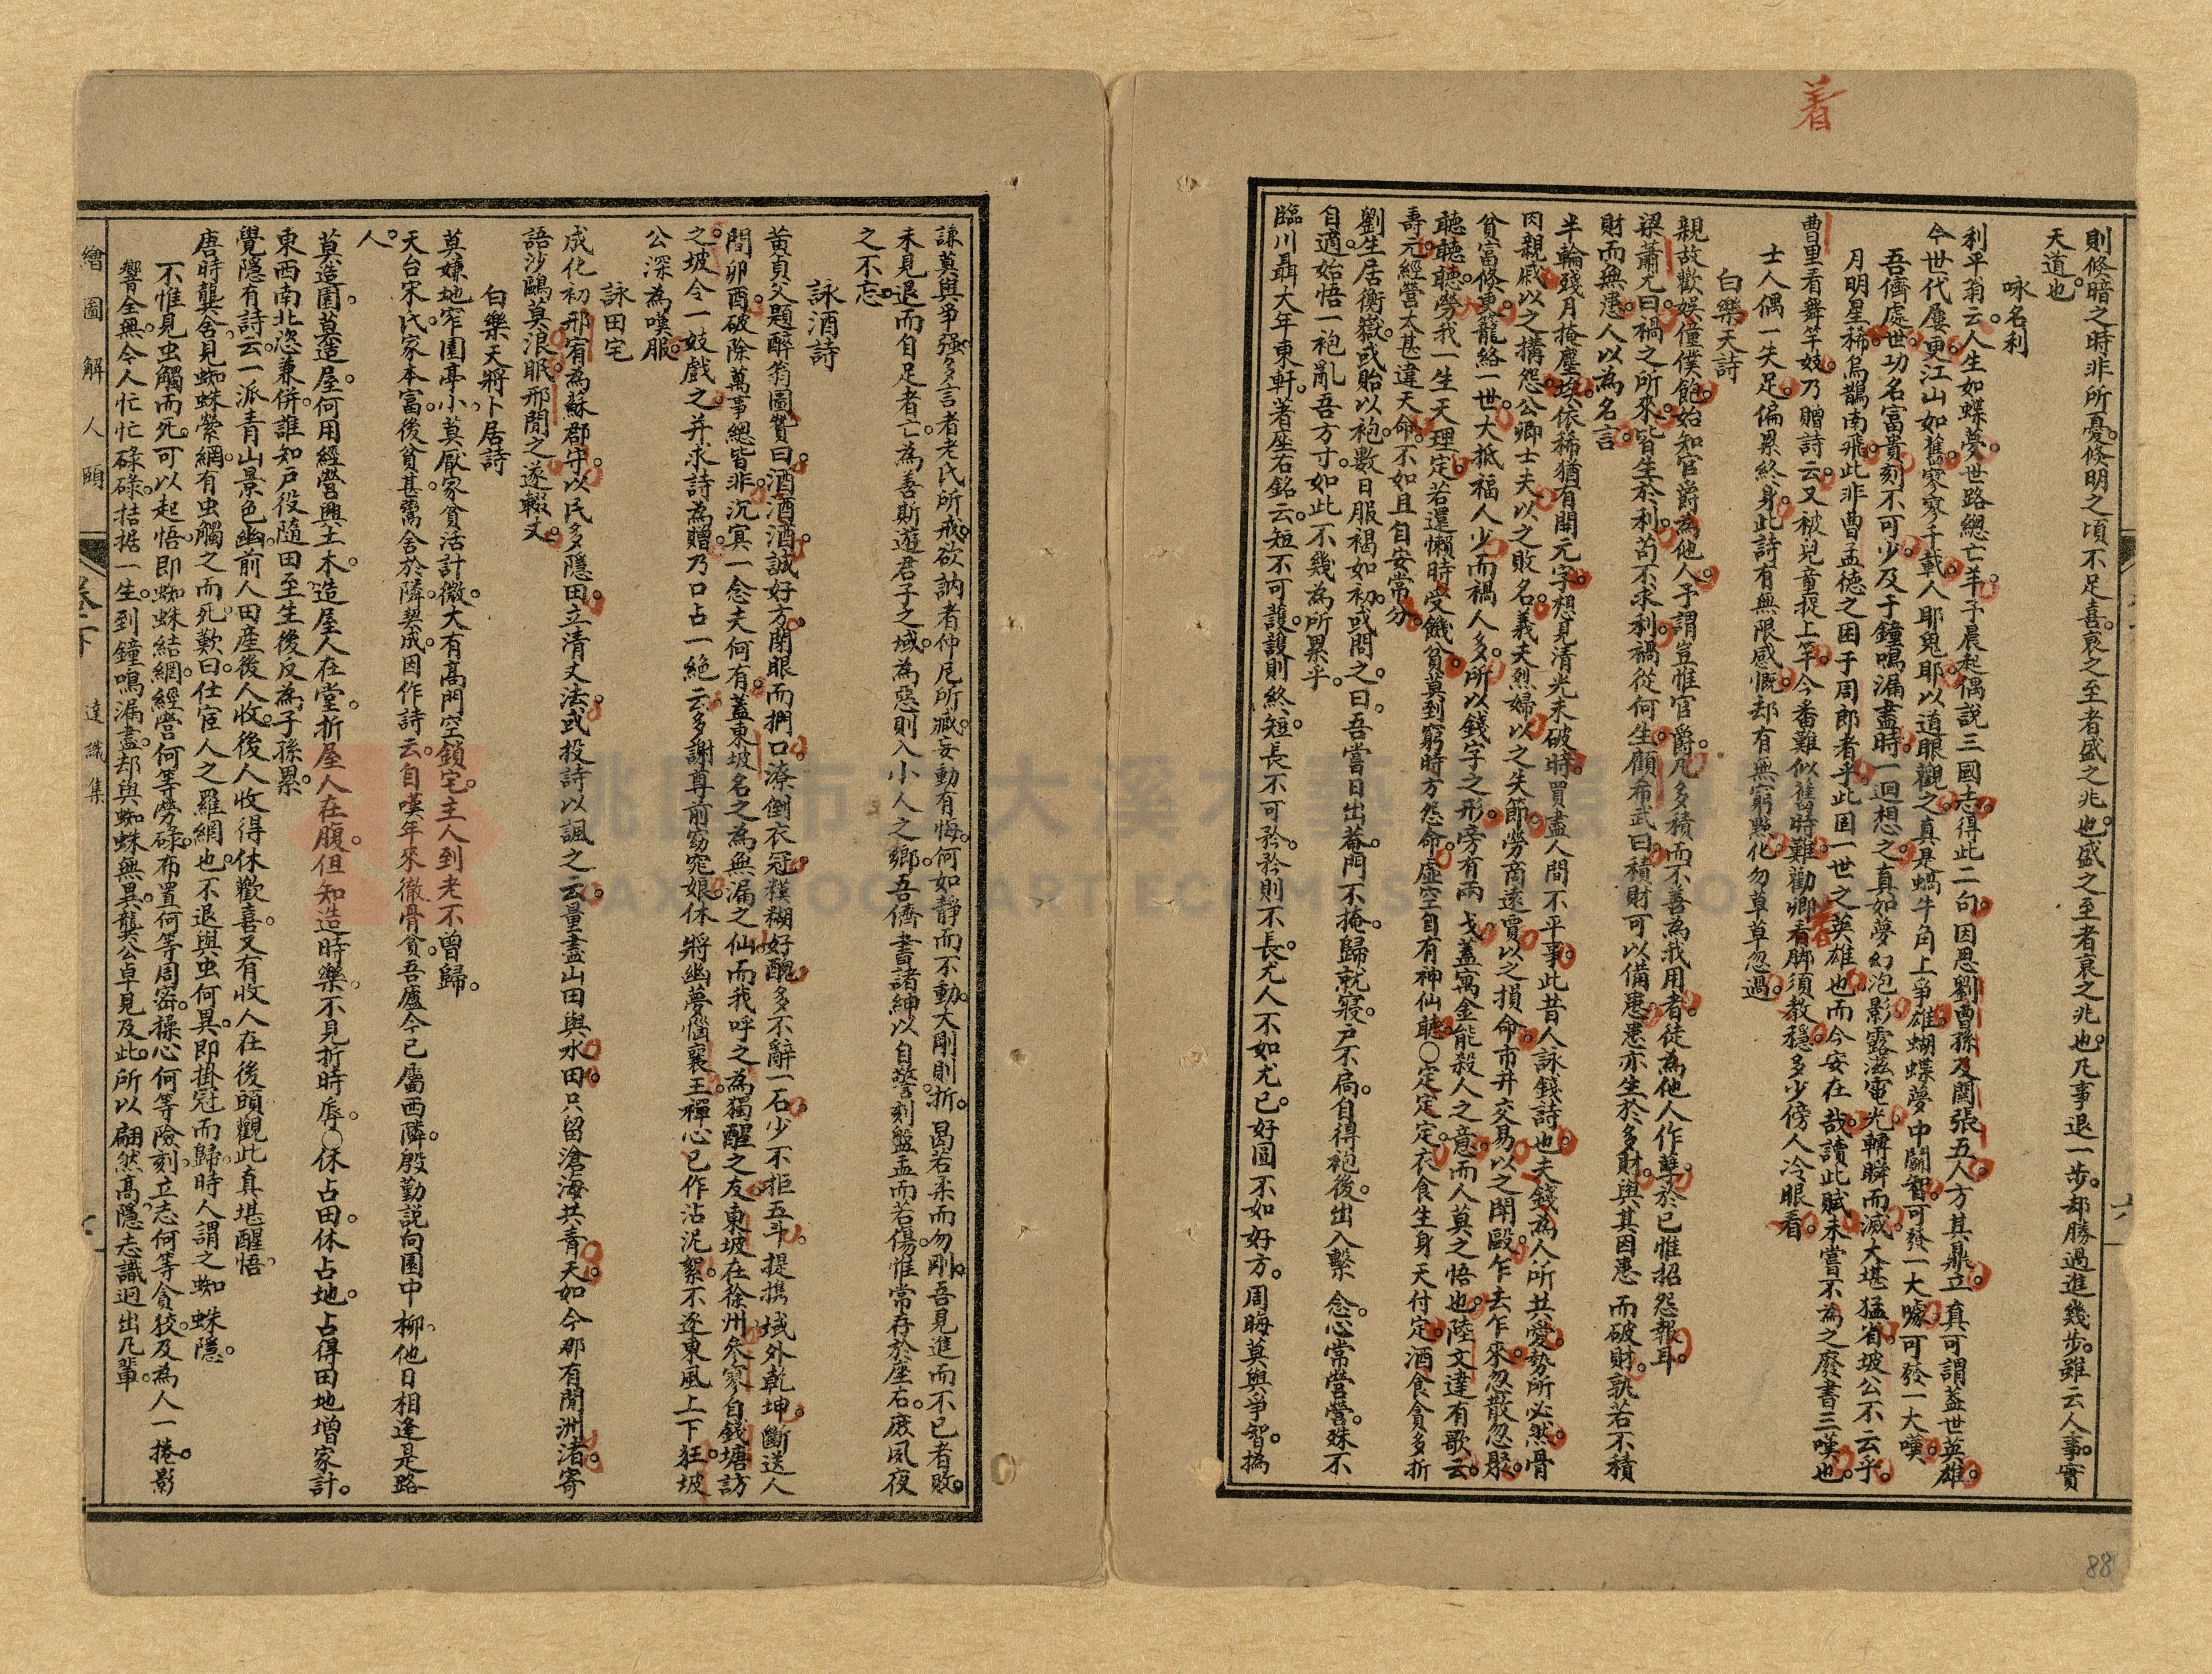 着
則修暗之時非所憂修明之頃不足喜衰之至者盛之兆也盛之至者衰之兆也凡事退一步却勝過進幾步雖云人事實
天道也
咏名利
利平翁云人生如蝶夢世路總亡羊予晨起偶說三國志得此二句因思劉曹孫及關張五人方其鼎立真可謂蓋世英雄
今世代屢更江山如舊寥寥千載人耶鬼耶以道眼觀之真是蝸牛角上爭雄蝴蝶夢中鬬智可發一大噱可發一大嘆
吾儕處世功名富貴刻不可少及于鐘鳴漏盡時一迴想之真如夢幻泡影露滋電光轉瞬而滅大堪猛省坡公不云乎
月明星稀烏鵲南飛此非曹孟德之困于周郎者乎此固一世之英雄也而今安在哉讀此賦未嘗不為之廢書三嘆也
曹里看舞竿妓乃贈詩云又被兒童捉上竿今番難似舊時難勸卿着脚須教穩多少傍人冷眼看
着
士人偶一失足偏累終身此詩有無限感慨却有無窮點化勿草草忽過
白樂天詩
親故歡娛僮僕飽始知官爵為他人予謂豈惟官爵凡多積而不善為我用者徒為他人作孽於已惟招怨報耳
梁蕭允曰禍之所來皆生於利苟不求利禍從何生顧布武曰積財可以備患患亦生於多財與其因患而破財孰若不積
財而無患人以為名言
半輪殘月掩塵埃依稀猶有開元字想見清光未破時買盡人間不平事此昔人詠錢詩也夫錢為人所共愛勢所必然骨
肉親戚以之搆怨公卿士夫以之敗名義夫烈婦以之失節勞商遠賈以之損命市井交易以之鬪毆乍去乍來忽散忽聚
貧富條更籠絡一世大抵福人少而禍人多所以錢字之形旁有兩戈蓋寓金能殺人之意而人莫之悟也陸文達有歌云
聽聽聽勞我一生天理定若還懶時受饑貧莫到窮時方怨命虛空自有神仙聽○定定定衣食生身天付定酒食貪多折
壽元經營太甚違天命不如且自安常分
劉生居衡嶽或貽以袍數日服褐如初或問之曰吾嘗日出菴門不掩歸就寢戶不扃自得袍後出入繫念心常營營殊不
自適始悟一袍亂吾方寸如此不幾為所累乎
臨川聶大年東軒著座右銘云短不可護護則終短長不可矜矜則不長尤人不如尤已好圓不如好方周晦莫與爭智撝
謙莫與爭强多言者老氏所戒欲訥者仲尼所臧妄動有悔何如靜而不動大剛則折曷若柔而勿剛吾見進而不已者敗
未見退而自足者亡為善斯遊君子之域為惡則入小人之鄉吾儕書諸紳以自警刻盤盂而若傷惟常存於座右庶夙夜
之不忘
詠酒詩
黃貞父題醉翁圖贊曰酒酒酒誠好方閉眼而捫口潦倒衣冠糢糊好醜多不辭一石少不拒五斗提携域外乾坤斷送人
間卯酉破除萬事總皆非沉冥一念夫何有蓋東坡名之為無漏之仙而我呼之為獨醒之友東坡在徐州叅寥自錢塘訪
之坡令一妓戲之并求詩為贈乃口占一絕云多謝尊前窈窕娘休將幽夢惱襄王禪心已作沾泥絮不逐東風上下狂坡
公深為嘆服
詠田宅
成化初邢宥為蘇郡守以民多隱田立清丈法或投詩以諷之云量盡山田與水田只留滄海共青天如今那有閒洲渚寄
語沙鷗莫浪眠邢聞之遂輟丈
白樂天將卜居詩
莫嫌地窄園亭小莫厭家貧活計微大有高門空鎖宅主人到老不曾歸
天台宋氏家本富後貧甚鬻舍於隣契成因作詩云自嘆年來徹骨貧吾廬今已屬西隣殷勤説向園中柳他日相逢是路
人
莫造園莫造屋何用經營興土木造屋人在堂折屋人在腹但知造時樂不見折時辱○休占田休占地占得田地增家計
東西南北恣兼併誰知戶役隨田至生後反為子孫累
覺隱有詩云一派青山景色幽前人田產後人收後人收得休歡喜又有收人在後頭觀此真堪醒悟
唐時龔舍見蜘蛛縈網有虫觸之而死歎曰仕宦人之羅網也不退與虫何異即掛冠而歸時人謂之蜘蛛隱
不惟見虫觸而死可以起悟即蜘蛛結網經營何等勞碌布置何等周密操心何等險刻立志何等貪狡及為人一捲影
響全無今人忙忙碌碌拮据一生到鐘鳴漏盡却與蜘蛛無異龔公卓見及此所以翩然高隱志識迥出凡輩
繪圖解人頤
卷下
達識集
88